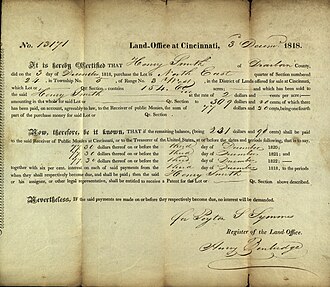 No. 13171 Land-Office at Cincinnati, 3d Decem 1818.
It is hereby Certified THAT Henry Smith of Dearborn County
did on the 3 day of December 1818, purchase the Lot or North East quarter of Section numbered
24, in Township No. 5, of Range No. 3 West, in the District of Lands offered for sale at Cincinnati,
which Lot or Qr. Section contains 154 acres; and
the said Henry Smith at the rate of 2 dollars and cents per acre—
amounting in the whole for said Lot or Qr. Section to 309 dollars 28 cents of which there
has been paid on account, agreeably to law, to the Receiver of Public Monies, the sum of 77 dollars cents, being one-fourth
part of the purchase money aforesaid.
Now, therefore, be it known, THAT if the remaining balance, (being 231 dollars 96 cents) shall be paid
to the said Receiver of Public Monies at Cincinnati, or to the Treasurer of the United States, at or before the dates and periods following, that is to say,
77 32 dollars thereof on or before the third day of December 1820;
77 32 dollars thereof on or before the third day of December 1821; and
77 32 dollars thereof on or before the third day of December 1822,—
together with six per cent. interest on each payment from the third day of December 1818, to the periods
when they shall respectively become due, then the said Henry Smith
or his assignee, or other legal representative, shall be entitled to receive a Patent for the Lot or Qr. Section above described.
Nevertheless, IF the said payments are made on or before they respectively become due, no interest will be demanded.
Peyton S Symmes
Register of the Land Office.
Henry